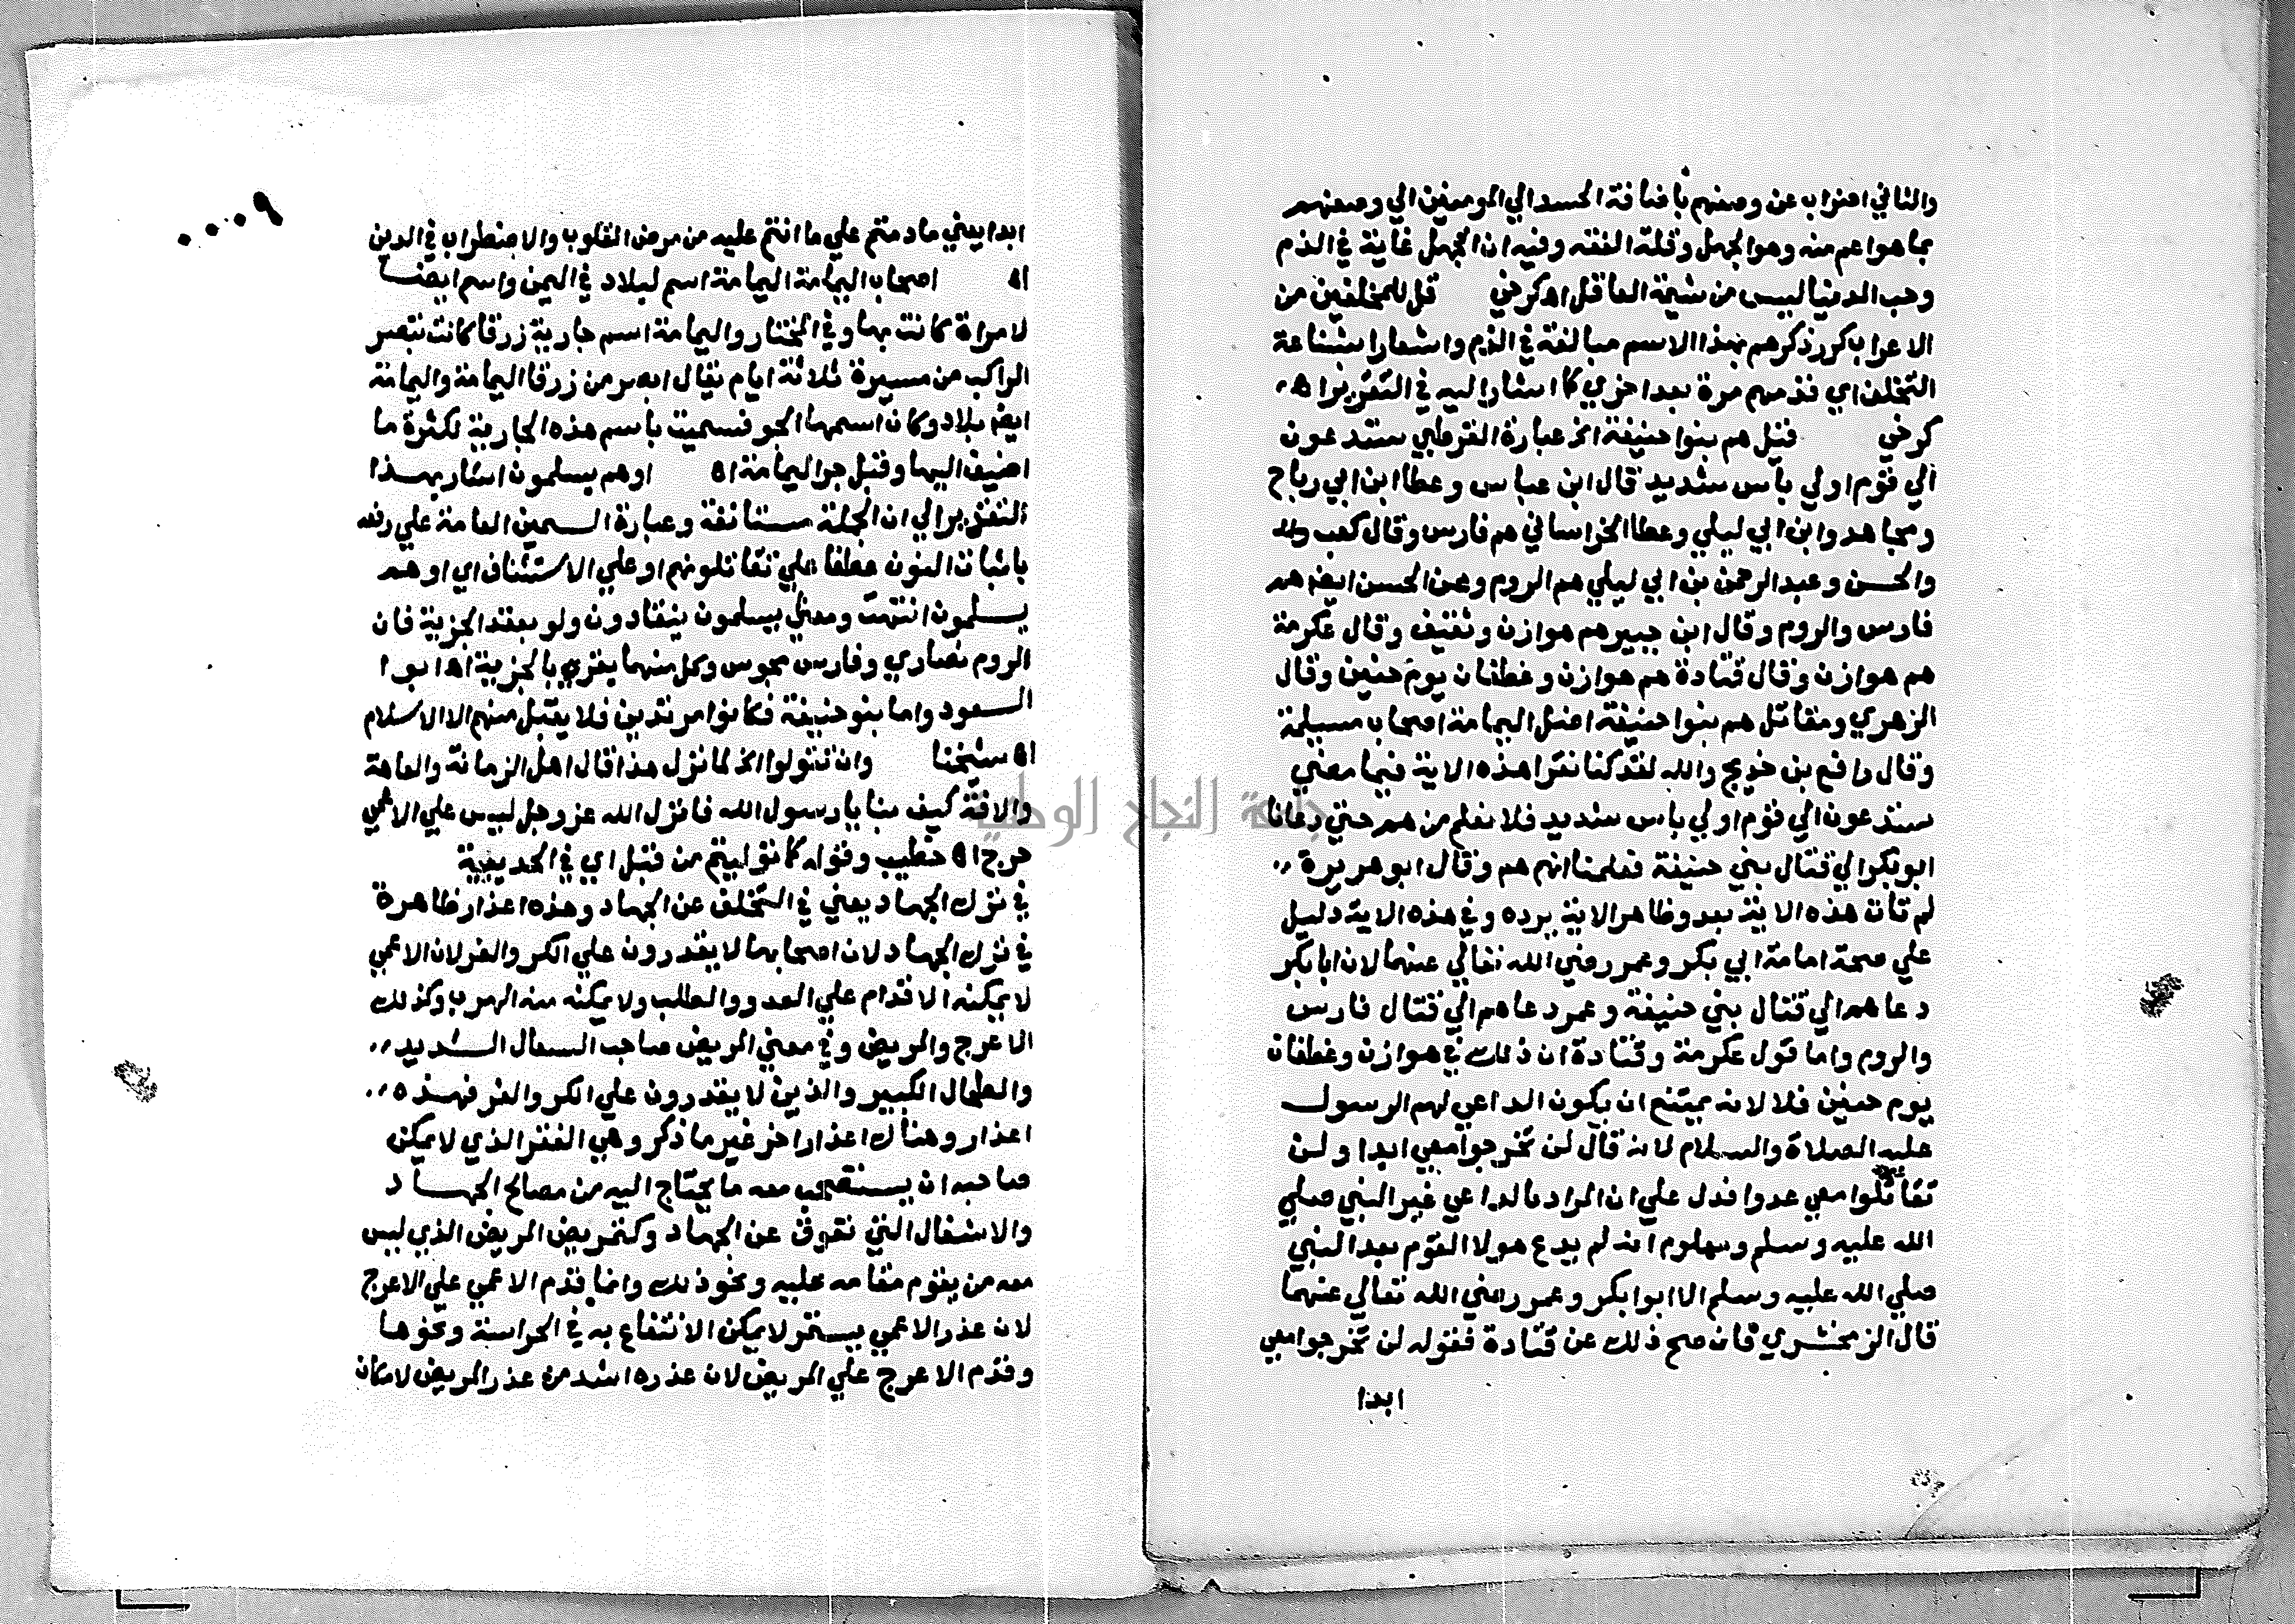 والثاني اضراب عن وصفهم باضافة الحسد الي المومنين الي وصفهم
بما هو اعم منه وهو الجهل وقلة الفقه وفيه ان الجهل غاية في الذم
وحب الدنيا ليس من شيمة العاقل اه كرخي قل للمخلفين من
الاعراب كرر ذكرهم بهذا الاسم مبالغة في الذم واشعارا بشناعة
التخلف اي فذمهم مرة بعد اخري كما اشار اليه في التقرير اه
كرخي قيل هم بنوا حنيفة الخ عبارة القرطبي ستدعون
الي قوم اولي باس شديد قال ابن عباس وعطا ابن ابي رباح
ومجاهد وابن ابي ليلي وعطا الخراساني هم فارس وقال كعب
والحسن وعبد الرحمن بن ابي ليلي هم الروم وعن الحسن ايضا هم
فارس والروم وقال ابن جبير هم هوازن وثقيف وقال عكرمة
هم هوازن وقال قتادة هم هوازن وغطفان يوم حنين وقال
الزهري ومقاتل هم بنوا حنيفة اهل اليمامة اصحاب مسيلمة
وقال رافع بن خديج والله لقد كنا نقرا هذه الاية فيما مضي
ستدعون الي قوم اولي باس شديد فلا نعلم من هم حتي دعانا
ابو بكر الي قتال بني حنيفة فعلمنا انهم هم وقال ابو هريرة
لم تات هذه الاية بعد وظاهر الاية يرده وفي هذه الاية دليل
علي صحة امامة ابي بكر وعمر رضي الله تعالي عنهما لان ابا بكر
دعاهم الي قتال بني حنيفة وعمر دعاهم الي قتال فارس
والروم واما قول عكرمة وقتادة ان ذلك في هوازن وغطفان
يوم حنين فلا لانه يمتنع ان يكون الداعي لهم الرسول
عليه الصلاة والسلام لانه قال لن تخرجوا معي ابدا ولن
تقاتلوا معي عدوا فدل علي ان المراد بالداعي غير النبي صلي
الله عليه وسلم ومعلوم انه لم يدع هولا القوم بعد النبي
صلي الله عليه وسلم الا ابوا بكر وعمر رضي الله تعالي عنهما
قال الزمخشري فان صح ذلك عن قتادة فقوله لن تخرجوا معي
ابدا
ابدا يعني ما دمتم علي ما انتم عليه من مرض القلوب والاضطراب في الدين
اه اصحاب اليمامة اليمامة اسم لبلاد في اليمن واسم ايضا
لامراة كانت بها وفي المختار واليمامة اسم جارية زرقا كانت تبصر
الراكب من مسيرة ثلاثة ايام يقال ابصر من زرقا اليمامة واليمامة
ايضا بلاد وكان اسمها الجو فسميت باسم هذه الجارية لكثرة ما
اضيف اليها وقيل جو اليمامة اه او هم يسلمون اشار بهذا
التقرير الي ان الجملة مستانفة وعبارة السمين العامة علي رفعه
باثبات النون عطفا علي تقاتلونهم او علي الاستئناف اي او هم
يسلمون انتهت ومعني يسلمون ينقادون ولو بعقد الجزية فان
الروم نصاري وفارس مجوس وكل منهما يقري بالجزية اه ابوا
السعود واما بنو حنيفة فكانوا مرتدين فلا يقبل منهم الا الاسلام
اه شيخنا وان تتولوا الخ لما نزل هذا قال اهل الزمانة والعاهة
والافة كيف بنا يا رسول الله فانزل الله عز وجل ليس علي الاعمي
حرج اه خطيب وقوله كما توليتم من قبل اي في الحديبية
في ترك الجهاد يعني في التخلف عن الجهاد وهذه اعذار ظاهرة
في ترك الجهاد لان اصحابها لا يقدرون علي الكر والفر لان الاعمي
لا يمكنه الاقدام علي العدو والطلب ولا يمكنه منه الهرب وكذلك
الاعرج والمريض وفي معني المريض صاحب السعال الشديد
والطحال الكبير والذين لا يقدرون علي الكر والفر فهذه
اعذار وهناك اعذار اخر غير ما ذكر وهي الفقر الذي لا يمكن
صاحبه ان يستصحب معه ما يحتاج اليه من مصالح الجهاد
والاشغال التي تعوق عن الجهاد وكتمريض المريض الذي ليس
معه من يقوم مقامه عليه ونحو ذلك وانما قدم الاعمي علي الاعرج
لان عذر الاعمي يستمر لا يمكن الانتفاع به في الحراسة ونحوها
وقدم الاعرج علي المريض لان عذره اشد من عذر المريض لامكان
جامعة النجاح الوطنية